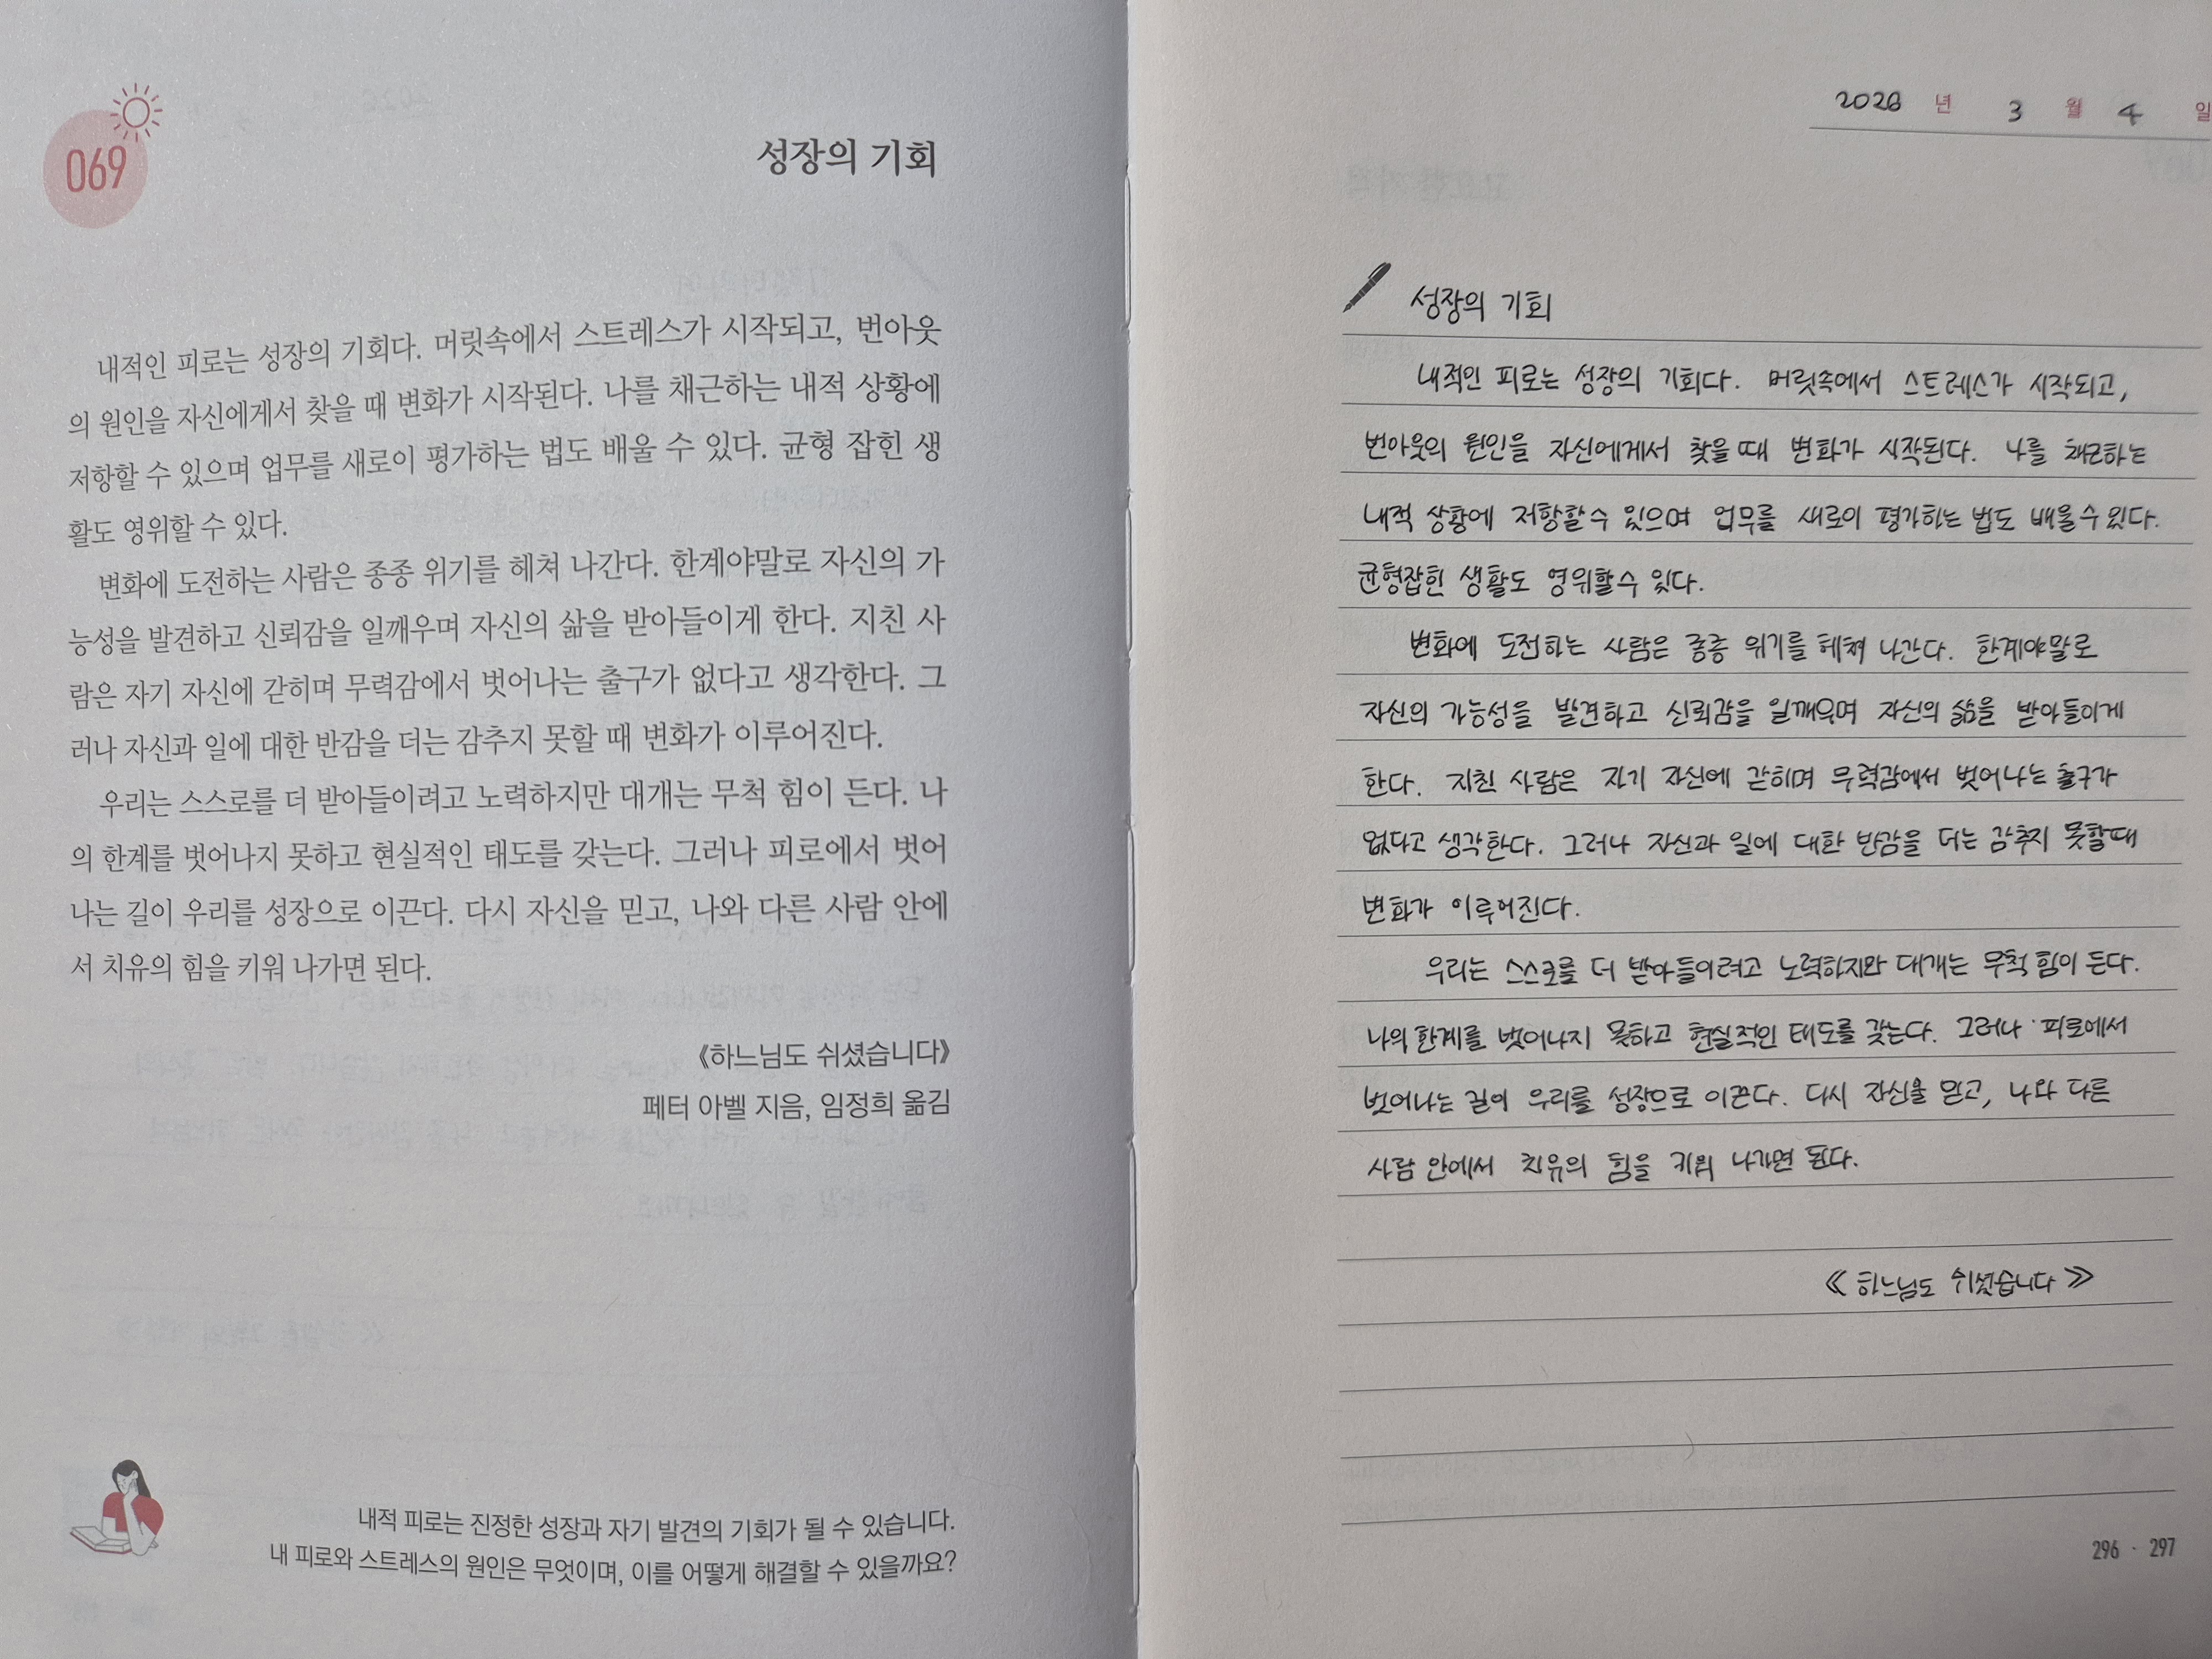 069
성장의 기회
내적인 피로는 성장의 기회다. 머릿속에서 스트레스가 시작되고, 번아웃
의 원인을 자신에게서 찾을 때 변화가 시작된다. 나를 채근하는 내적 상황에
저항할 수 있으며 업무를 새로이 평가하는 법도 배울 수 있다. 균형 잡힌 생
활도 영위할 수 있다.
변화에 도전하는 사람은 종종 위기를 헤쳐 나간다. 한계야말로 자신의 가
능성을 발견하고 신뢰감을 일깨우며 자신의 삶을 받아들이게 한다. 지친 사
람은 자기 자신에 갇히며 무력감에서 벗어나는 출구가 없다고 생각한다. 그
러나 자신과 일에 대한 반감을 더는 감추지 못할 때 변화가 이루어진다.
우리는 스스로를 더 받아들이려고 노력하지만 대개는 무척 힘이 든다. 나
의 한계를 벗어나지 못하고 현실적인 태도를 갖는다. 그러나 피로에서 벗어
나는 길이 우리를 성장으로 이끈다. 다시 자신을 믿고, 나와 다른 사람 안에
서 치유의 힘을 키워 나가면 된다.
《하느님도 쉬셨습니다》
페터 아벨 지음, 임정희 옮김
내적 피로는 진정한 성장과 자기 발견의 기회가 될 수 있습니다.
내 피로와 스트레스의 원인은 무엇이며, 이를 어떻게 해결할 수 있을까요?
2026 년 3 월 4 일
성장의 기회
내적인 피로는 성장의 기회다. 머릿속에서 스트레스가 시작되고,
번아웃의 원인을 자신에게서 찾을 때 변화가 시작된다. 나를 채근하는
내적 상황에 저항할 수 있으며 업무를 새로이 평가하는 법도 배울 수 있다.
균형잡힌 생활도 영위할 수 있다.
변화에 도전하는 사람은 종종 위기를 헤쳐 나간다. 한계야말로
자신의 가능성을 발견하고 신뢰감을 일깨우며 자신의 삶을 받아들이게
한다. 지친 사람은 자기 자신에 갇히며 무력감에서 벗어나는 출구가
없다고 생각한다. 그러나 자신과 일에 대한 반감을 더는 감추지 못할때
변화가 이루어진다.
우리는 스스로를 더 받아들이려고 노력하지만 대개는 무척 힘이 든다.
나의 한계를 벗어나지 못하고 현실적인 태도를 갖는다. 그러나 피로에서
벗어나는 길이 우리를 성장으로 이끈다. 다시 자신을 믿고, 나와 다른
사람 안에서 치유의 힘을 키워 나가면 된다.
《하느님도 쉬셨습니다》
296 · 297